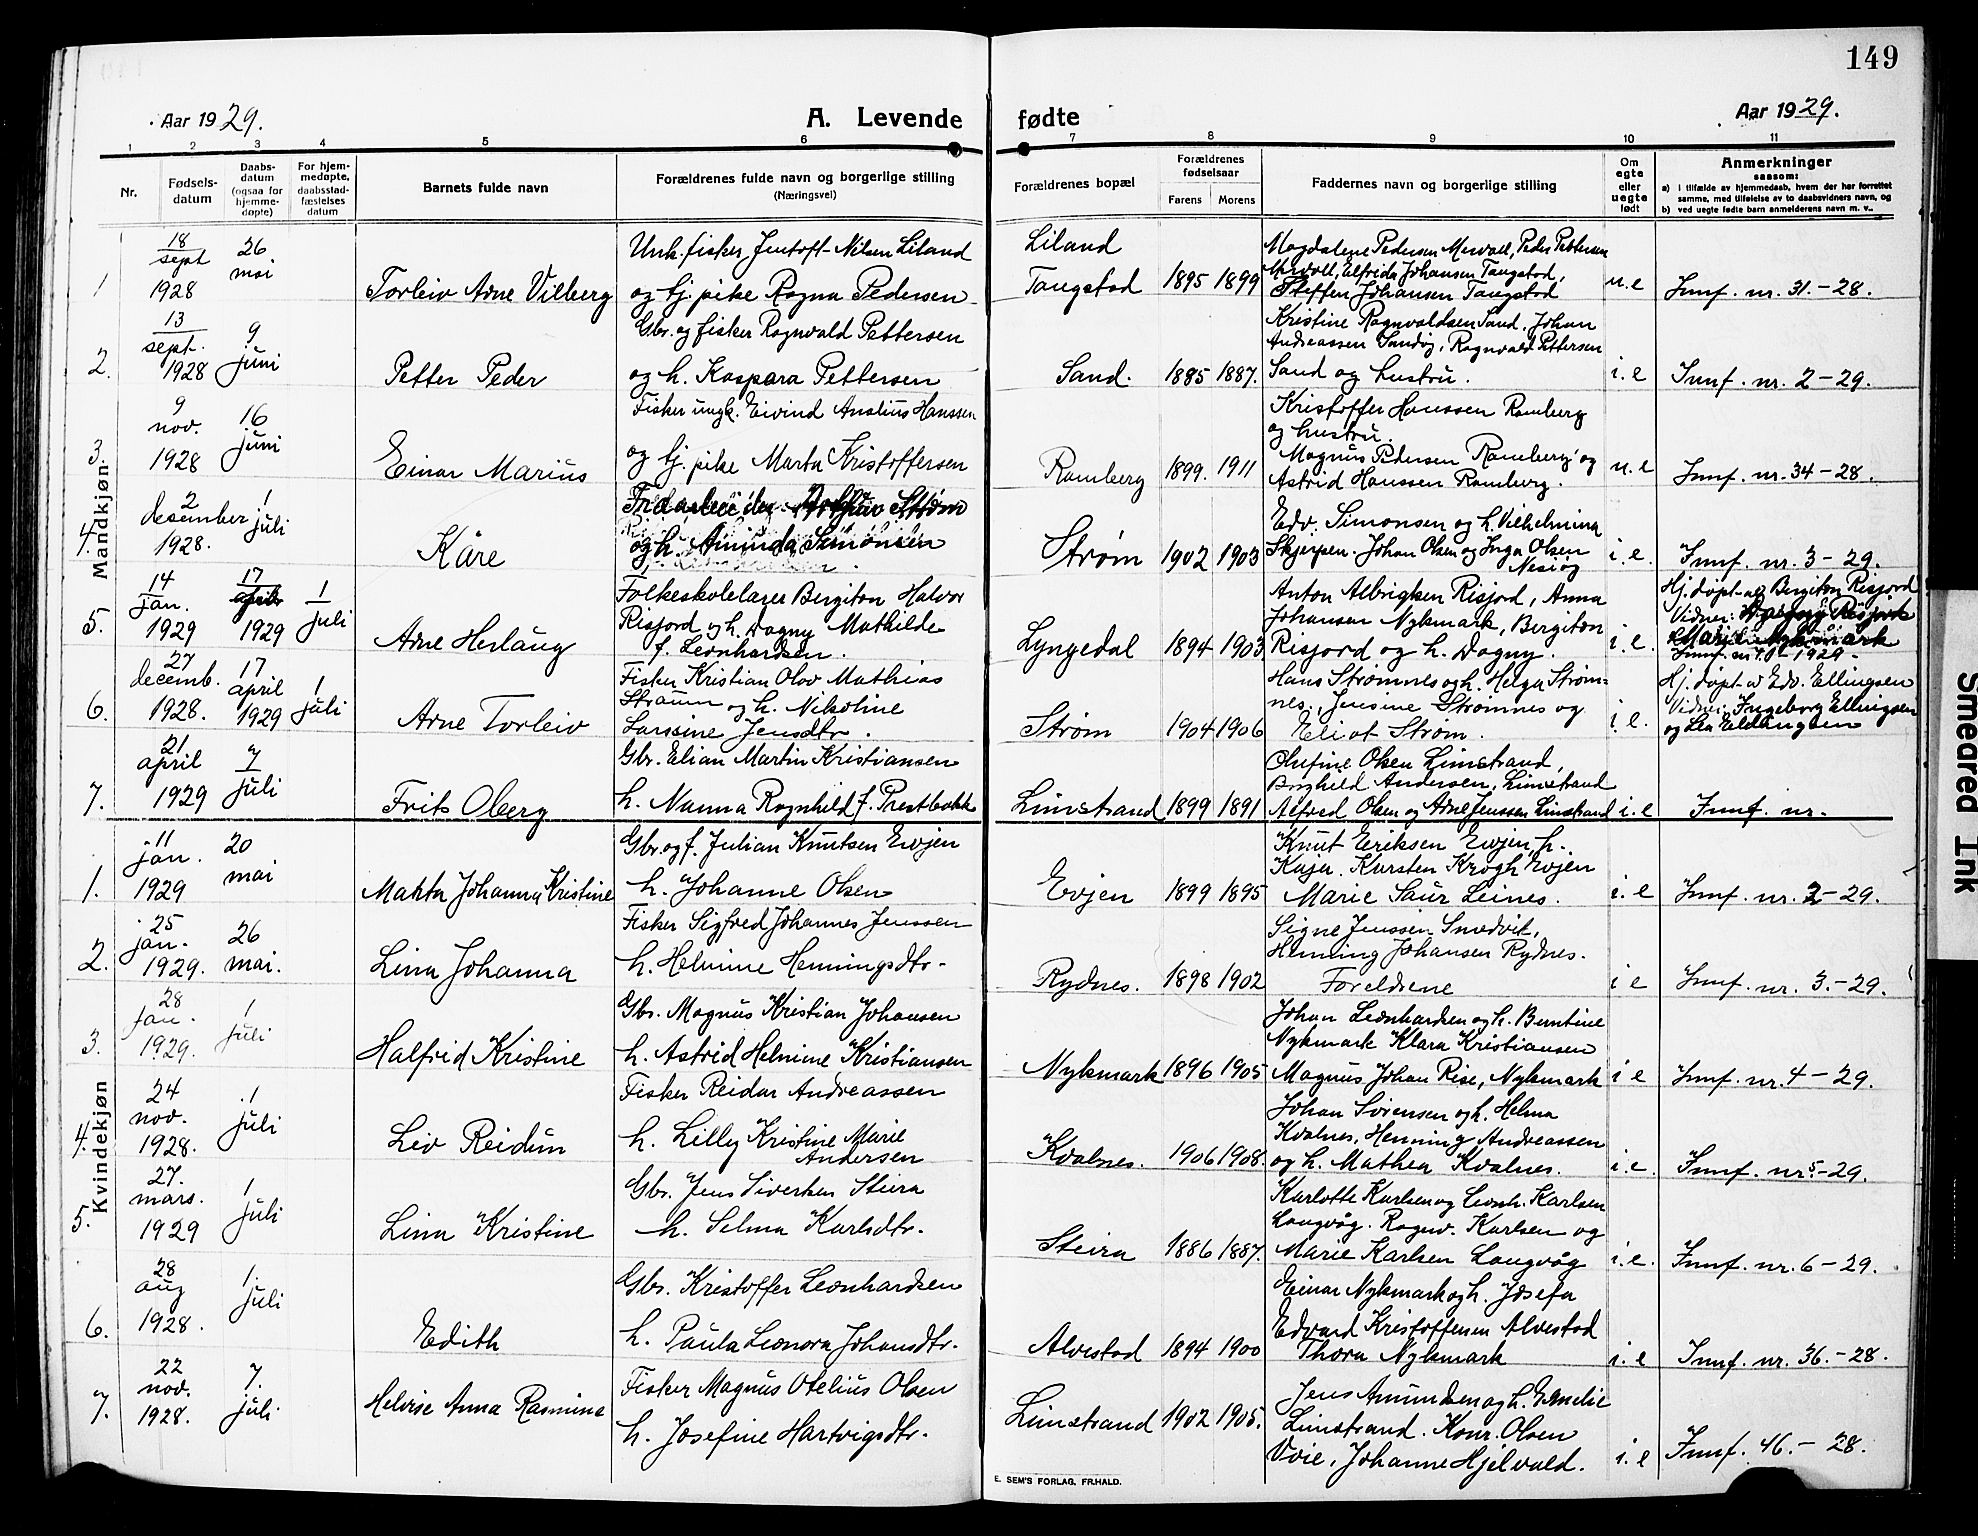 149
Aar 1929.
A. Levende fødte
Aar 1929.
1 2 3 4 5 6 7 8 9 10 11
Nr.
Fødsels-
datum
Daabs-
datum
(ogsaa for
hjemme-
døpte)
For hjem-
medøpte,
daabsstad-
fæstelses
datum
Barnets fulde navn
Forældrenes fulde navn og borgerlige stilling
(Næringsvei)
Forældrenes bopæl
Forældrenes
fødselsaar
Farens Morens
Faddernes navn og borgerlige stilling
Om
egte
eller
uegte
født
Anmerkninger
saasom:
a) i tilfælde av hjemmedaab, hvem der har forrettet
samme, med tilføielse av to daabsvidners navn, og
b) ved uegte født barn anmelderens navn m. v..
Mandkjøn
1
18
sept
1928
26
mai
Torleiv Arne Vilberg
Unk. fisker Jentoft Nilsen Liland
og tj. pike Ragna Pedersen
Liland
Tangstad
1895 1899
Magdalene Pedersen Mervoll, Peder Pettersen
Mervoll, Elfrida Johansen Tangstad,
Steffen Johansen Tangstad
u.e
Innf. nr. 31.-28.
2.
13
sept.
1928
9
juni
Petter Peder
Gbr. og fisker Ragnvald Pettersen
og h. Kaspara Pettersen
Sand.
1885 1887.
Kristine Ragnvaldsen Sand, Johan
Andreassen Sandøy, Ragnvald Pettersen
Sand og hustru.
i.e
Innf. nr. 2-29.
3.
9
nov.
1928
16
juni
Einar Marius
Fisker ungk. Eivind Anslius Hanssen
og tj. pike Marta Kristoffersen
Ramberg
1899. 1911
Kristoffer Hanssen Ramberg
og hustru.
Magnus Pedersen Ramberg og
Astrid Hanssen Ramberg.
u.e
Innf. nr. 34-28.
4.
2
desember
1928.
1
juli
Kåre
Strøm
og h. Aminda Simonsen
Strøm
1902 1903
Edv. Simonsen og h. Vilhelmina
Skjerpen. Johan Olsen og Inga Olsen
Nesjøg
i.e.
Innf. nr. 3-29.
5.
14
jan.
1929
17
april
1929
1
juli
Arne Herlaug
Folkeskolelærer Bergiton Halvor
Risjord og h. Dagny Mathilde
f. Leonhardsen.
Lyngedal
1894 1903
Anton Albrigtsen Risjord, Anna
Johansen Nykmark, Bergiton
Risjord og h. Dagny.
i.e.
Hj. døpt av Bergiton Risjord
Vidner: Dagny Risjord
Marie Nykmark
1929
6.
27
decemb.
1928.
17
april
1929
1
juli
Arne Torleiv
Fisker Kristian Olav Mathias
Straum og h. Nikoline
Larsine Jensdtr.
Strøm
1904 1906
Hans Strømnes og h. Helga Strøm-
nes, Jensine Strømnes og
Eliot Strøm.
i.e.
Hj. døpt av Edv. Ellingsen
Vidner: Ingeborg Ellingsen
og Lea Ellingsen
7.
21
april
1929
7
juli
Frits Oberg
Gbr. Elian Martin Kristiansen
h. Nanna Ragnhild f. Prestbakk
Limstrand
1899 1891
Olufine Olsen Limstrand,
Borghild Andersen, Limstrand
Alfred Olsen og Arne Jenssen Limstrand
i.e
Innf. nr.
Kvindekjøn
1.
11
jan.
1929
20
mai
Makta Johanna Kristine
Gbr. og f. Julian Knutsen Evjen
h. Johanne Olsen
Evjen
1899 1895
Knut Eriksen Evjen, h.
Kaja. Karsten Krogh Evjen
Marie Saur Leines.
i.e
Innf. nr. 2-29.
2.
25
jan.
1929.
26
mai.
Lina Johanna
Fisker Sigfred Johannes Jenssen
h. Helmine Henningsdtr.
Rydnes.
1898 1902
Signe Jenssen Smedvik,
Hemling Johansen Rydnes.
Foreldrene
i e
Innf. nr. 3.-29.
3.
28
jan.
1929.
1
juli
Halfrid Kristine
Gbr. Magnus Kristian Johansen
h. Astrid Helmine Kristiansen
Nykmark
1896 1905
Johan Leonhardsen og h. Berntine
Nykmark Klara Kristiansen
Magnus Johan Rise, Nykmark
i e
Innf. nr. 4-29.
4.
24
nov.
1928.
1
juli
Liv Reidun
Fisker Reidar Andreassen
h. Lilly Kristine Marie
Andersen
Kvalnes.
1906 1908.
Johan Sørensen og h. Helma
Kvalnes, Henning Andreassen
og h. Mathea Kvalnes.
i.e.
Innf. nr 5-29.
5.
27.
mars.
1929
1
juli
Lina Kristine
Gbr. Jens Sivertsen Steira
h. Selma Karlsdtr.
Steira
1886 1887.
Karlotte Karlsen og Leonh. Karlsen
Langvåg. Ragnv. Karlsen og
Marie Karlsen Langvåg
i.e.
Innf. nr. 6-29.
6.
28
aug
1928.
1
juli
Edith
Gbr. Kristoffer Leonhardsen
h. Paula Leonora Johansdtr.
Alvestad
1894 1900
Einar Nykmark og h. Josefa
Edvard Kristoffersen Alvestad
Thora Nykmark
i.e
Innf. nr. 36.-28.
7.
22
nov.
1928.
7.
juli
Helvise Anna Rasmina
Fisker Magnus Otelius Olsen
h. Josefine Hartvigsdtr.
Limstrand
1902 1905.
Jens Amundsen og h. Emelie
Limstrand. Konr. Olsen
Voie, Johanne Hjelvald.
i.e
Innf. 46.-28.
E. SEM'S FORLAG, FR.HALD.
Smeared Ink